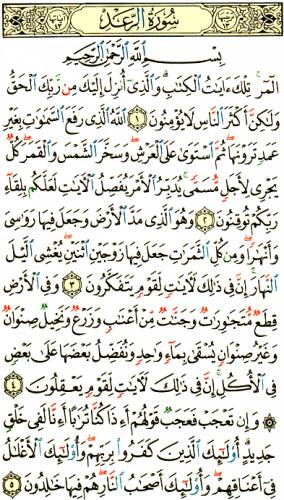 سُورَةُ الرَّعْدِ
بِسْمِ اللَّهِ الرَّحْمَٰنِ الرَّحِيمِ
الٓمٓر ۚ تِلْكَ ءَايَٰتُ الْكِتَٰبِ ۗ وَالَّذِىٓ أُنزِلَ إِلَيْكَ مِن رَّبِّكَ الْحَقُّ
وَلَٰكِنَّ أَكْثَرَ النَّاسِ لَا يُؤْمِنُونَ ١ اللَّهُ الَّذِى رَفَعَ السَّمَٰوَٰتِ بِغَيْرِ
عَمَدٍ تَرَوْنَهَا ۖ ثُمَّ اسْتَوَىٰ عَلَى الْعَرْشِ ۖ وَسَخَّرَ الشَّمْسَ وَالْقَمَرَ ۖ كُلٌّ
يَجْرِى لِأَجَلٍ مُّسَمًّى ۚ يُدَبِّرُ الْأَمْرَ يُفَصِّلُ الْءَايَٰتِ لَعَلَّكُم بِلِقَآءِ
رَبِّكُمْ تُوقِنُونَ ٢ وَهُوَ الَّذِى مَدَّ الْأَرْضَ وَجَعَلَ فِيهَا رَوَٰسِىَ
وَأَنْهَٰرًا ۖ وَمِن كُلِّ الثَّمَرَٰتِ جَعَلَ فِيهَا زَوْجَيْنِ اثْنَيْنِ ۖ يُغْشِى الَّيْلَ
النَّهَارَ ۚ إِنَّ فِى ذَٰلِكَ لَءَايَٰتٍ لِّقَوْمٍ يَتَفَكَّرُونَ ٣ وَفِى الْأَرْضِ
قِطَعٌ مُّتَجَٰوِرَٰتٌ وَجَنَّٰتٌ مِّنْ أَعْنَٰبٍ وَزَرْعٌ وَنَخِيلٌ صِنْوَانٌ
وَغَيْرُ صِنْوَانٍ يُسْقَىٰ بِمَآءٍ وَٰحِدٍ وَنُفَضِّلُ بَعْضَهَا عَلَىٰ بَعْضٍ
فِى الْأُكُلِ ۚ إِنَّ فِى ذَٰلِكَ لَءَايَٰتٍ لِّقَوْمٍ يَعْقِلُونَ ٤
۞ وَإِن تَعْجَبْ فَعَجَبٌ قَوْلُهُمْ أَءِذَا كُنَّا تُرَٰبًا أَءِنَّا لَفِى خَلْقٍ
جَدِيدٍ ۗ أُو۟لَٰٓئِكَ الَّذِينَ كَفَرُوا۟ بِرَبِّهِمْ ۖ وَأُو۟لَٰٓئِكَ الْأَغْلَٰلُ
فِىٓ أَعْنَاقِهِمْ ۖ وَأُو۟لَٰٓئِكَ أَصْحَٰبُ النَّارِ ۖ هُمْ فِيهَا خَٰلِدُونَ ٥